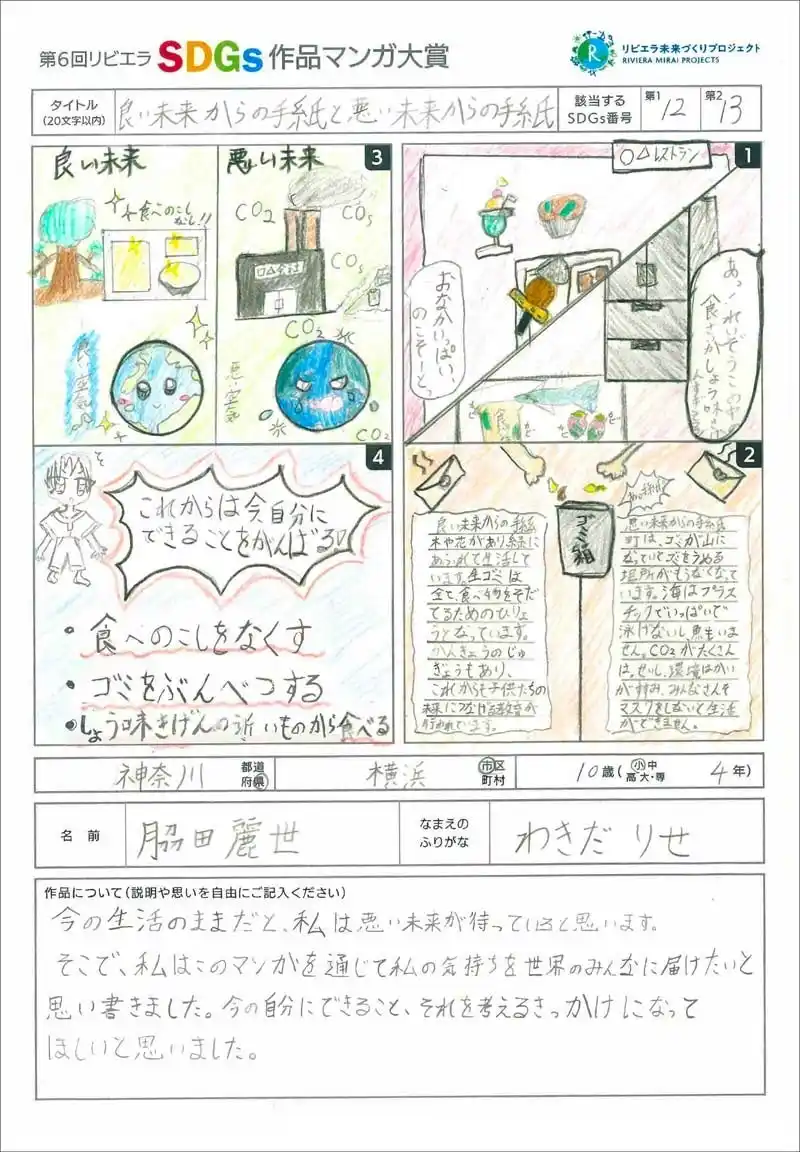 第6回リビエラ SDGs 作品マンガ大賞
リビエラ未来づくりプロジェクト
RIVIERA MIRAI PROJECTS
タイトル
(20文字以内)
良い未来からの手紙と悪い未来からの手紙
該当する
SDGs番号
第1 12
第2 13
1
〇△レストラン
おなかいっぱい、
のこそーっと。
あっ!れいぞうこの中
食
2
良い未来からの手紙
木や花があり緑に
あふれて生活して
います。生ゴミは
全て、食べ物をそだ
てるためのひりょ
うとなっています。
かんきょうのじゅ
ぎょうもあり、
これからも子供たちの
未来につなげる教育が
行われています。
ゴミ箱
悪い未来からの手紙
町は、ゴミが山に
なっていてゴミをうめる
場所がもうなくなって
います。海はプラス
チックでいっぱいで
泳げないし、魚もいま
せん。CO2がたくさん
はっせいし、環境はかい
が進み、みんなさんそ
マスクをしないと生活
ができません。
3
良い未来
食べのこし
なし!!
良い空気
悪い未来
CO2
〇△会社
CO2
悪い空気
CO2
4
これからは今自分に
できることをがんばるぞ
・食べのこしをなくす
・ゴミをぶんべつする
・しょう味きげんの近いものから食べる
神奈川 都道府県
横浜 市区町村
10歳(小中高大・専 4年)
名前
脇田麗世
なまえの
ふりがな
わきだ りせ
作品について(説明や思いを自由にご記入ください)
今の生活のままだと、私は悪い未来が待っていると思います。
そこで、私はこのマンガを通じて私の気持ちを世界のみんなに届けたいと
思い書きました。今の自分にできること、それを考えるきっかけになって
ほしいと思いました。